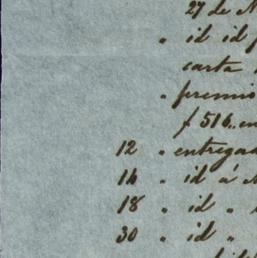 27 de
" id id
carta
" premio
f 516.. en
12 " entregad
14 " id á
18 " id "
30 " id "